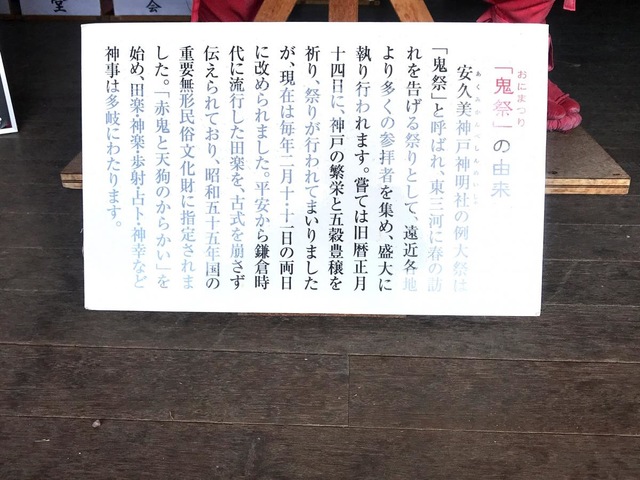 堂
会
おにまつり
「鬼祭」の由来
あくみかんべしんめいしゃ
安久美神戸神明社の例大祭は
「鬼祭」と呼ばれ、東三河に春の訪
れを告げる祭りとして、遠近各地
より多くの参拝者を集め、盛大に
執り行われます。嘗ては旧暦正月
十四日に、神戸の繁栄と五穀豊穣を
祈り、祭りが行われてまいりました
が、現在は毎年二月十・十一日の両日
に改められました。平安から鎌倉時
代に流行した田楽を、古式を崩さず
伝えられており、昭和五十五年国の
重要無形民俗文化財に指定されま
した。「赤鬼と天狗のからかい」を
始め、田楽・神楽・歩射・占卜・神幸など
神事は多岐にわたります。